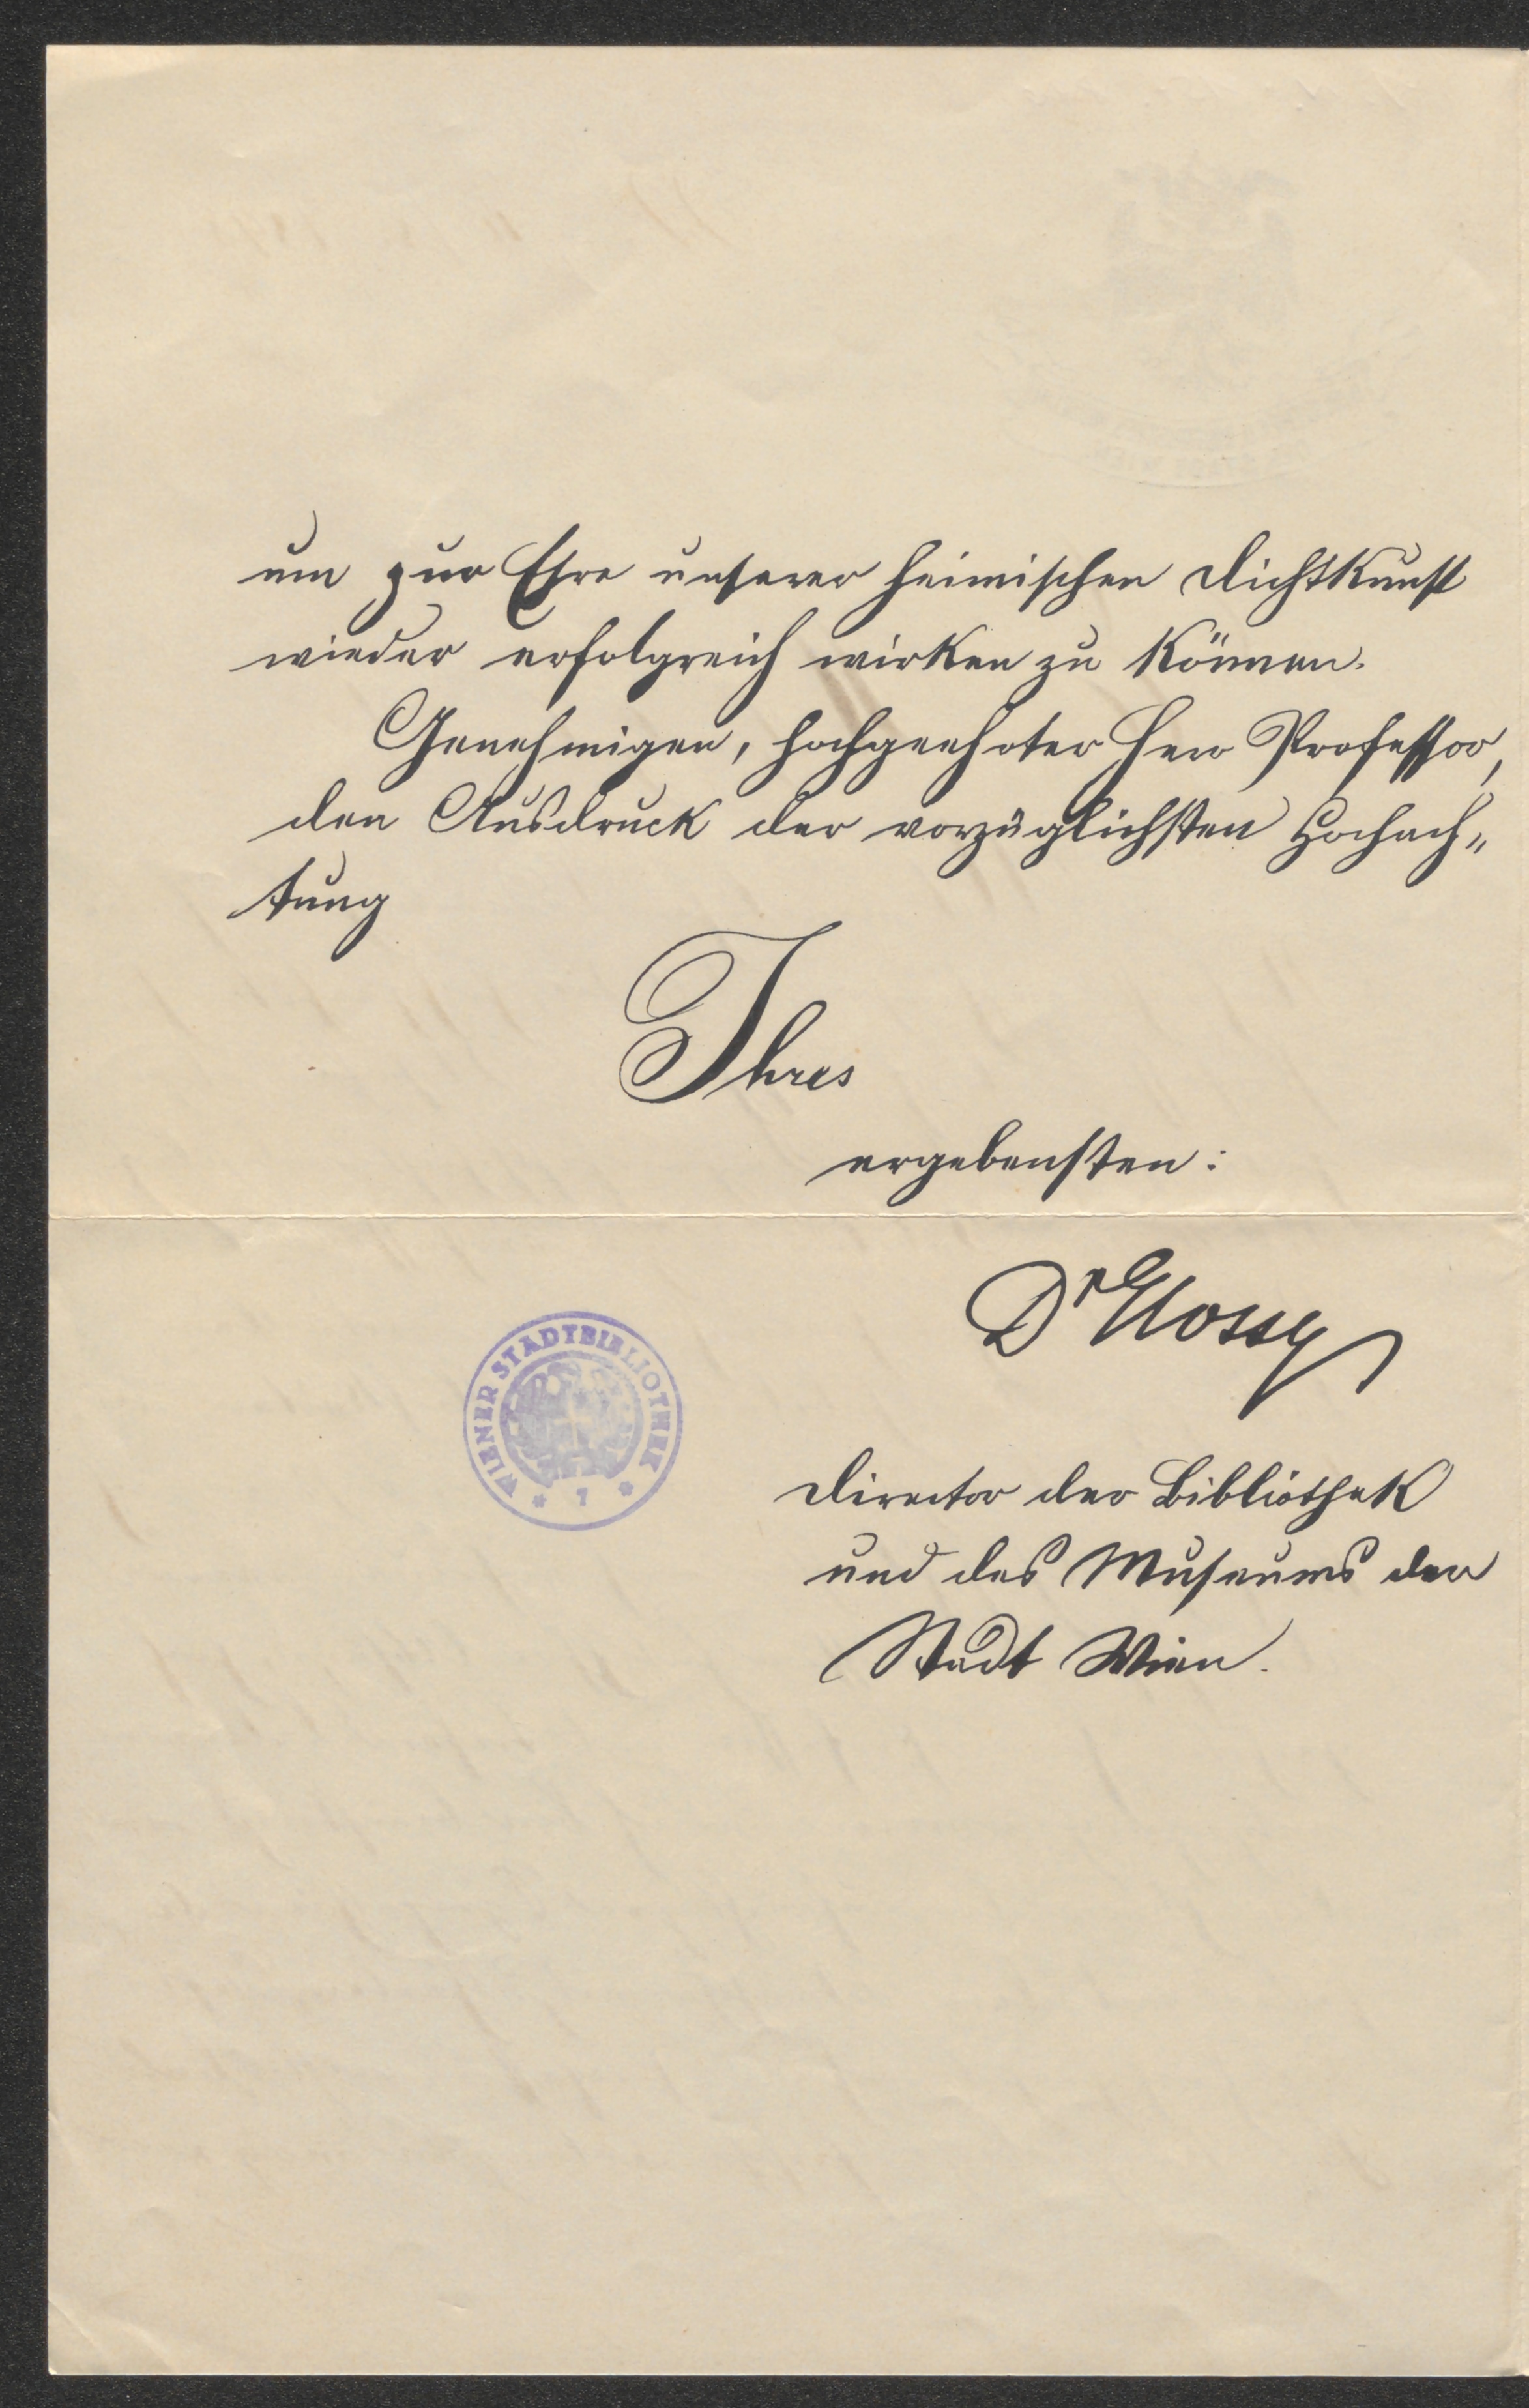 um zur Ehre unserer heimischen Dichtkunst
wieder erfolgreich wirken zu können.
Genehmigen, hochgeehrter Herr Professor,
den Ausdruck der vorzüglichsten Hochach„
tung
Ihres
ergebensten:
Dr Glossy
WIENER STADTBIBLIOTHEK
* 7 *
Director der Bibliothek
und des Museums der
Stadt Wien.